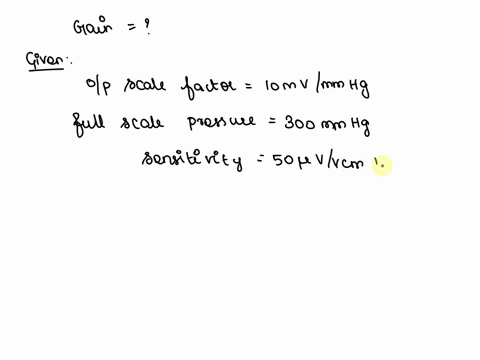 Gain = ?
Given:.
o/p scale factor = 10mV/mmHg
full scale pressure = 300 mmHg
sensitivity = 50μV/vcm